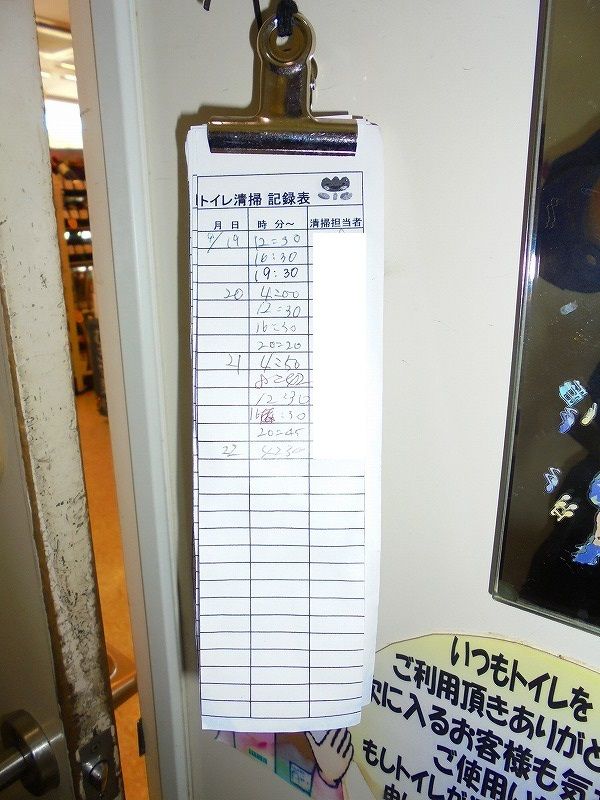 トイレ清掃 記録表
月 日 時 分～ 清掃担当者
9/19 12:30
16:30
19:30
20 4:00
12:30
16:30
20:20
21 4:50
8:42
12:30
16:30
20:45
22 4:30
いつもトイレを
ご利用頂きありがと
次に入るお客様も気
ご使用い
もしトイレが